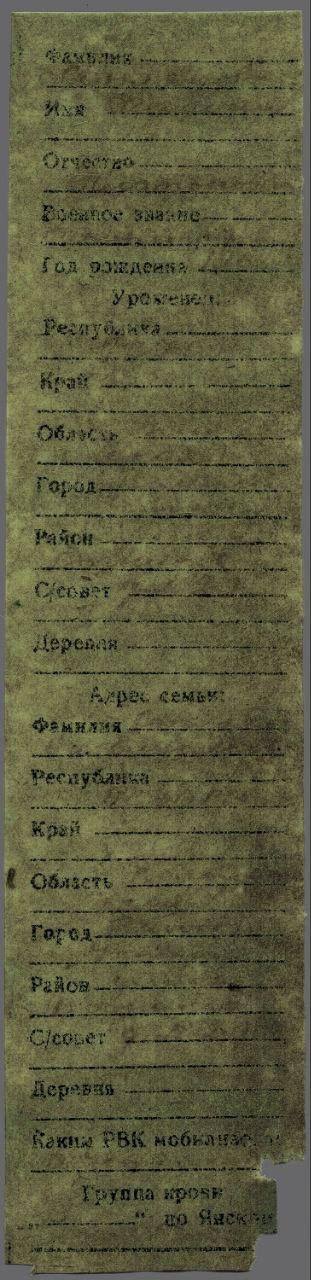 Фамилия
Имя
Отчество
Военное звание
Год рождения
Уроженец:
Республика
Край
Область
Город
Район
С/совет
Деревня
Адрес семьи:
Фамилия
Республика
Край
Область
Город
Район
С/совет
Деревня
Каким РВК мобилизо
Группа крови
" по Янском